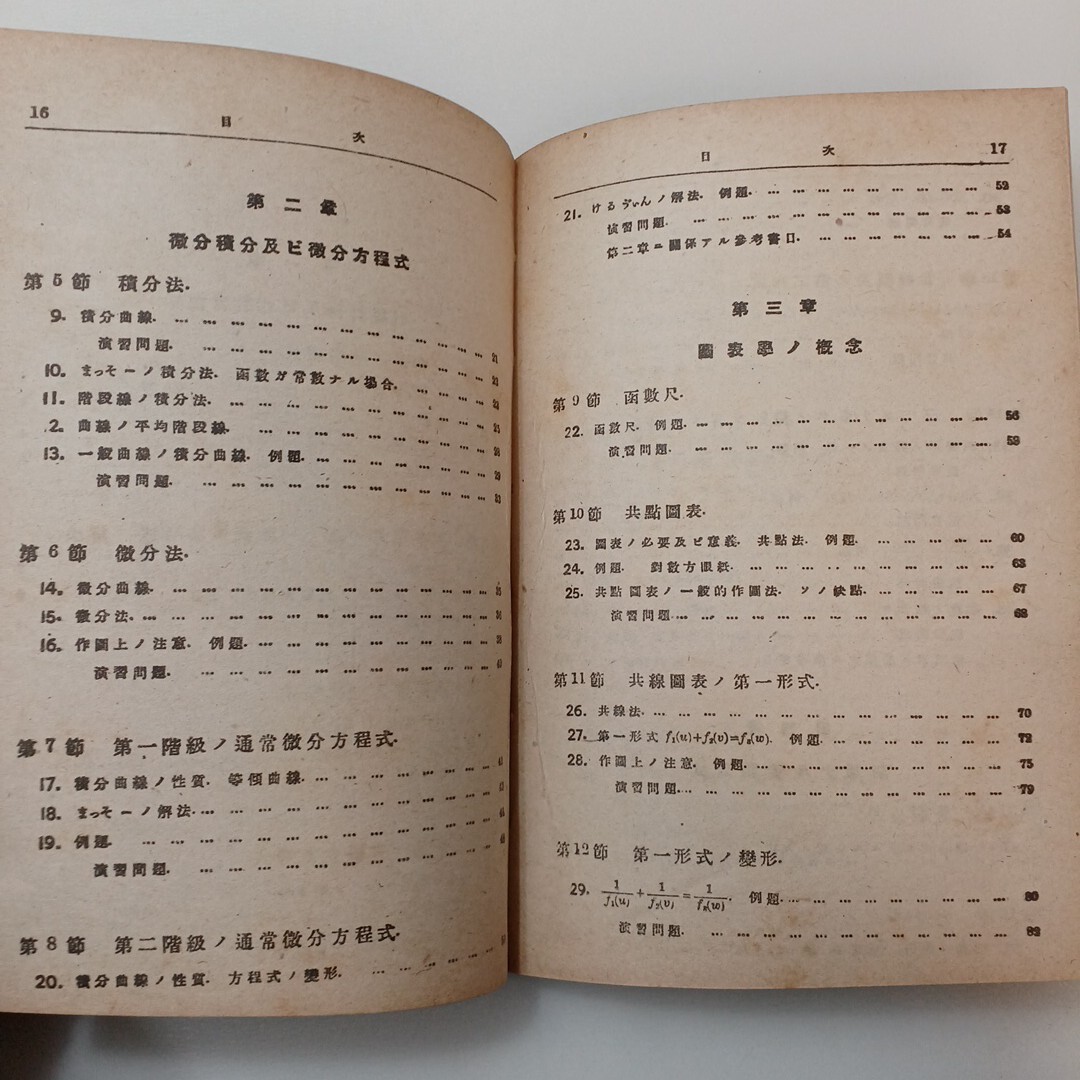 16
目 次
第二章
微分積分及ビ微分方程式
第5節 積分法.
9. 積分曲線. … … … … … … … … … … … …
演習問題. … … … … … … … … … … … 21
10. まっそーノ積分法. 函數ガ常數ナル場合. … … … … 23
11. 階段線ノ積分法. … … … … … … … … … … 23
2. 曲線ノ平均階段線. … … … … … … … … … … 25
13. 一般曲線ノ積分曲線. 例題. … … … … … … … 29
演習問題. … … … … … … … … … … … 33
第6節 微分法.
14. 微分曲線. … … … … … … … … … … … … … 35
15. 微分法. … … … … … … … … … … … … … 36
16. 作圖上ノ注意. 例題. … … … … … … … … … 38
演習問題. … … … … … … … … … … … 40
第7節 第一階級ノ通常微分方程式.
17. 積分曲線ノ性質. 等傾曲線. … … … … … … … 41
18. まっそーノ解法. … … … … … … … … … …
19. 例題. … … … … … … … … … … … … …
演習問題. … … … … … … … … … … …
第8節 第二階級ノ通常微分方程式.
20. 積分曲線ノ性質. 方程式ノ變形. … … … … …
目 次 17
21. けるゔぃんノ解法. 例題. … … … … … … … … … 52
演習問題. … … … … … … … … … … … 53
第二章ニ關係アル參考書目. … … … … … … … 54
第三章
圖表學ノ概念
第9節 函數尺.
22. 函數尺. 例題. … … … … … … … … … … … 56
演習問題. … … … … … … … … … … … 58
第10節 共點圖表.
23. 圖表ノ必要及ビ意義. 共點法. 例題. … … … … … 60
24. 例題. 對數方眼紙. … … … … … … … … … 63
25. 共點圖表ノ一般的作圖法. ソノ缺點. … … … … … 67
演習問題. … … … … … … … … … … … 68
第11節 共線圖表ノ第一形式.
26. 共線法. … … … … … … … … … … … … … 70
27. 第一形式 f₁(u)+f₂(v)=f₃(w). 例題. … … … … … … 72
28. 作圖上ノ注意. 例題. … … … … … … … … … 75
演習問題. … … … … … … … … … … … 79
第12節 第一形式ノ變形.
29. 1/f₁(u) + 1/f₂(v) = 1/f₃(w). 例題. … … … … … … … … 80
演習問題. … … … … … … … … … … … 82